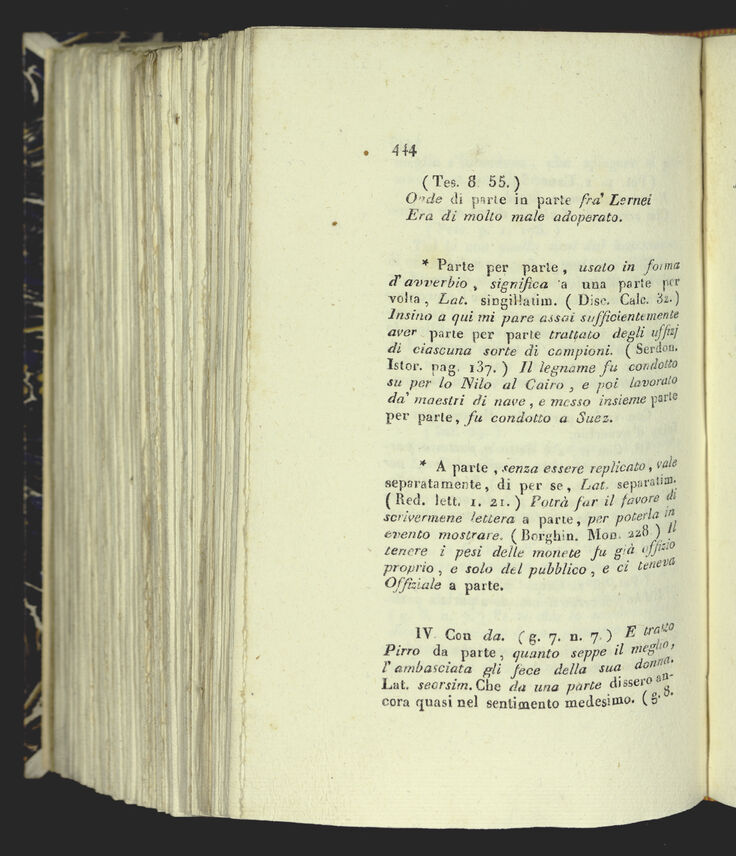 444
(Tes. 8. 55.)
Onde di parte in parte fra' Lernei
Era di molto male adoperato.
* Parte per parte, usato in forma
d'avverbio, significa a una parte per
volta, Lat. singillatim. (Disc. Calc. 32.)
Insino a qui mi pare assai sufficientemente
aver parte per parte trattato degli uffizj
di ciascuna sorte di campioni. (Serdon.
Istor. pag. 137.) Il legname fu condotto
su per lo Nilo al Cairo, e poi lavorato
da' maestri di nave, e messo insieme parte
per parte, fu condotto a Suez.
* A parte, senza essere replicato, vale
separatamente, di per se, Lat. separatim.
(Red. lett. 1. 21.) Potrà far il favore di
scrivermene lettera a parte, per poterla in
evento mostrare. (Borghin. Mon. 228.) Il
tenere i pesi delle monete fu già offizio
proprio, e solo del pubblico, e ci teneva
Offiziale a parte.
IV. Con da. (g. 7. n. 7.) E tratto
Pirro da parte, quanto seppe il meglio,
l'ambasciata gli fece della sua donna.
Lat. seorsim. Che da una parte dissero an-
cora quasi nel sentimento medesimo. (g. 8.